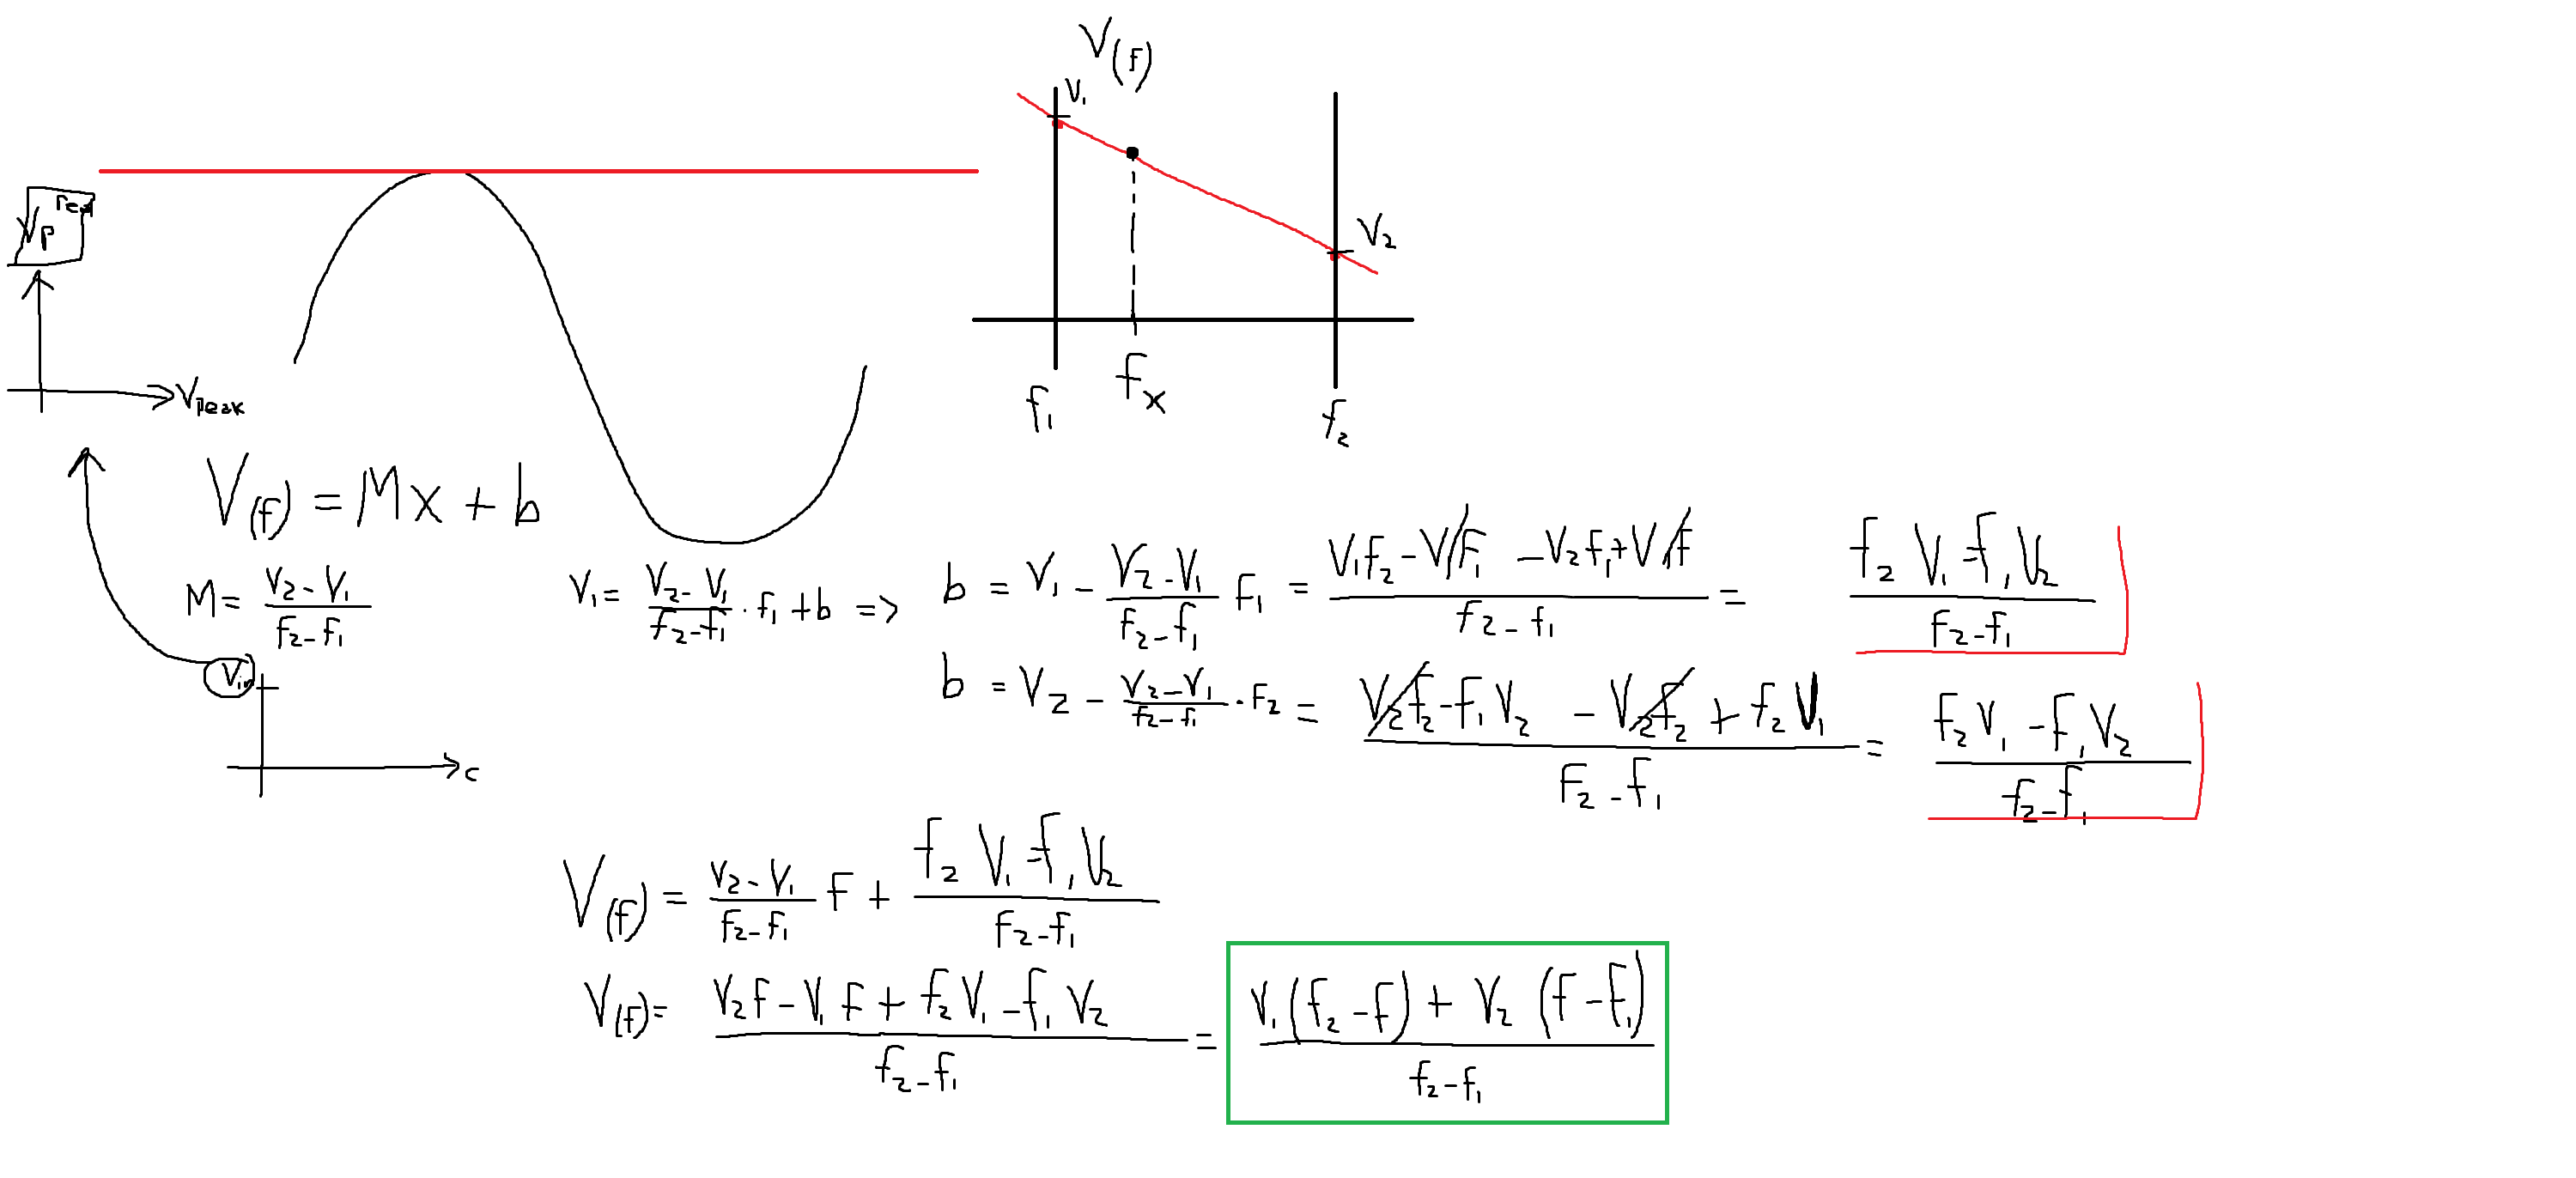 V(f)
V₁
V₂
Vp real
Vpeak
f₁
fx
f₂
V(f) = Mx + b
M = (V₂ - V₁) / (f₂ - f₁)
V₁ = (V₂ - V₁) / (f₂ - f₁) · f₁ + b =>
b = V₁ - (V₂ - V₁) / (f₂ - f₁) f₁ = (V₁f₂ - V₁f₁ - V₂f₁ + V₁f) / (f₂ - f₁) = (f₂ V₁ - f₁ V₂) / (f₂ - f₁)
b = V₂ - (V₂ - V₁) / (f₂ - f₁) · f₂ = (V₂f₂ - f₁V₂ - V₂f₂ + f₂V₁) / (f₂ - f₁) = (f₂V₁ - f₁V₂) / (f₂ - f₁)
Vin
c
V(f) = (V₂ - V₁) / (f₂ - f₁) f + (f₂ V₁ - f₁ V₂) / (f₂ - f₁)
V(f) = (V₂f - V₁f + f₂V₁ - f₁V₂) / (f₂ - f₁) = (V₁(f₂ - f) + V₂(f - f₁)) / (f₂ - f₁)